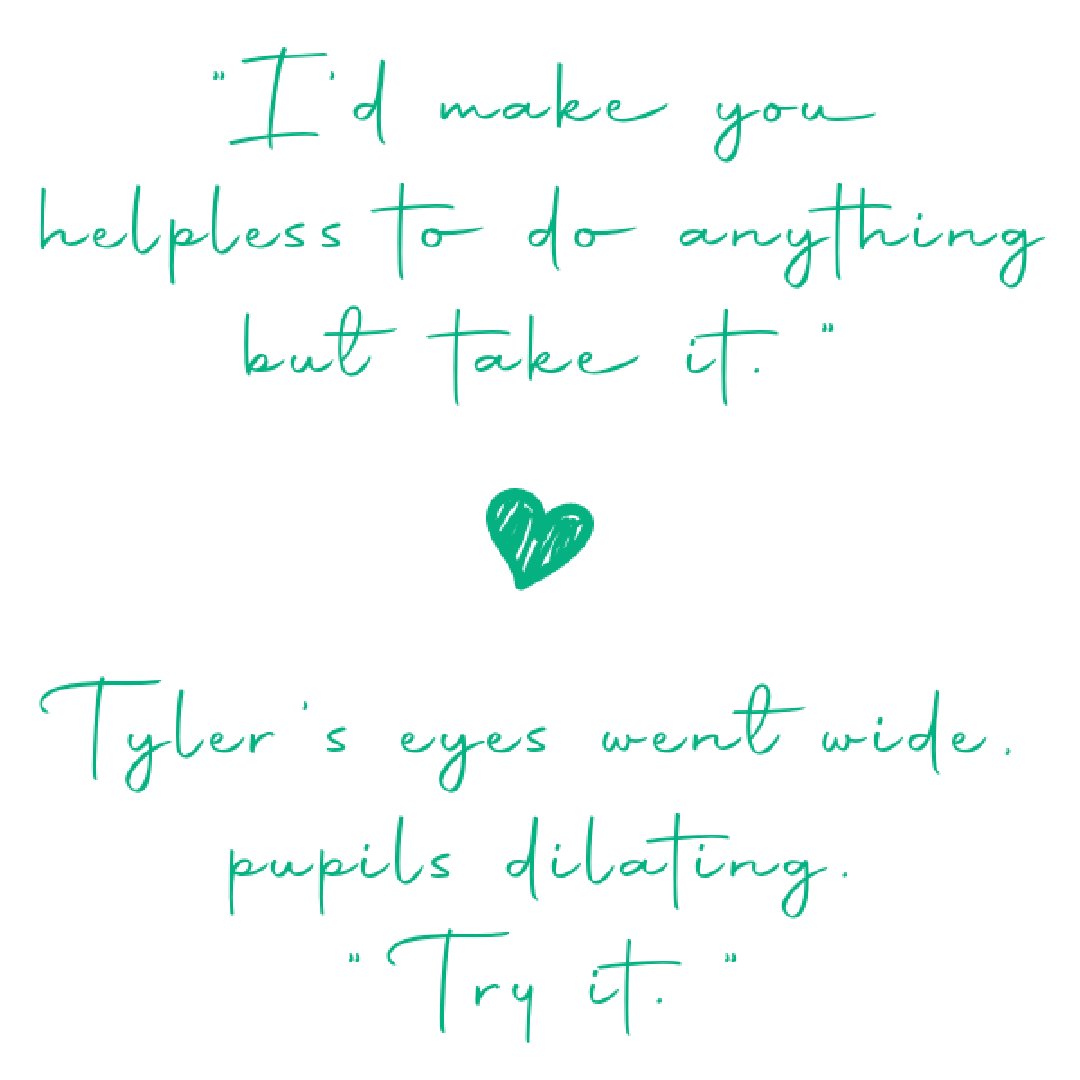 "I'd make you
helpless to do anything
but take it."
Tyler's eyes went wide,
pupils dilating.
"Try it."